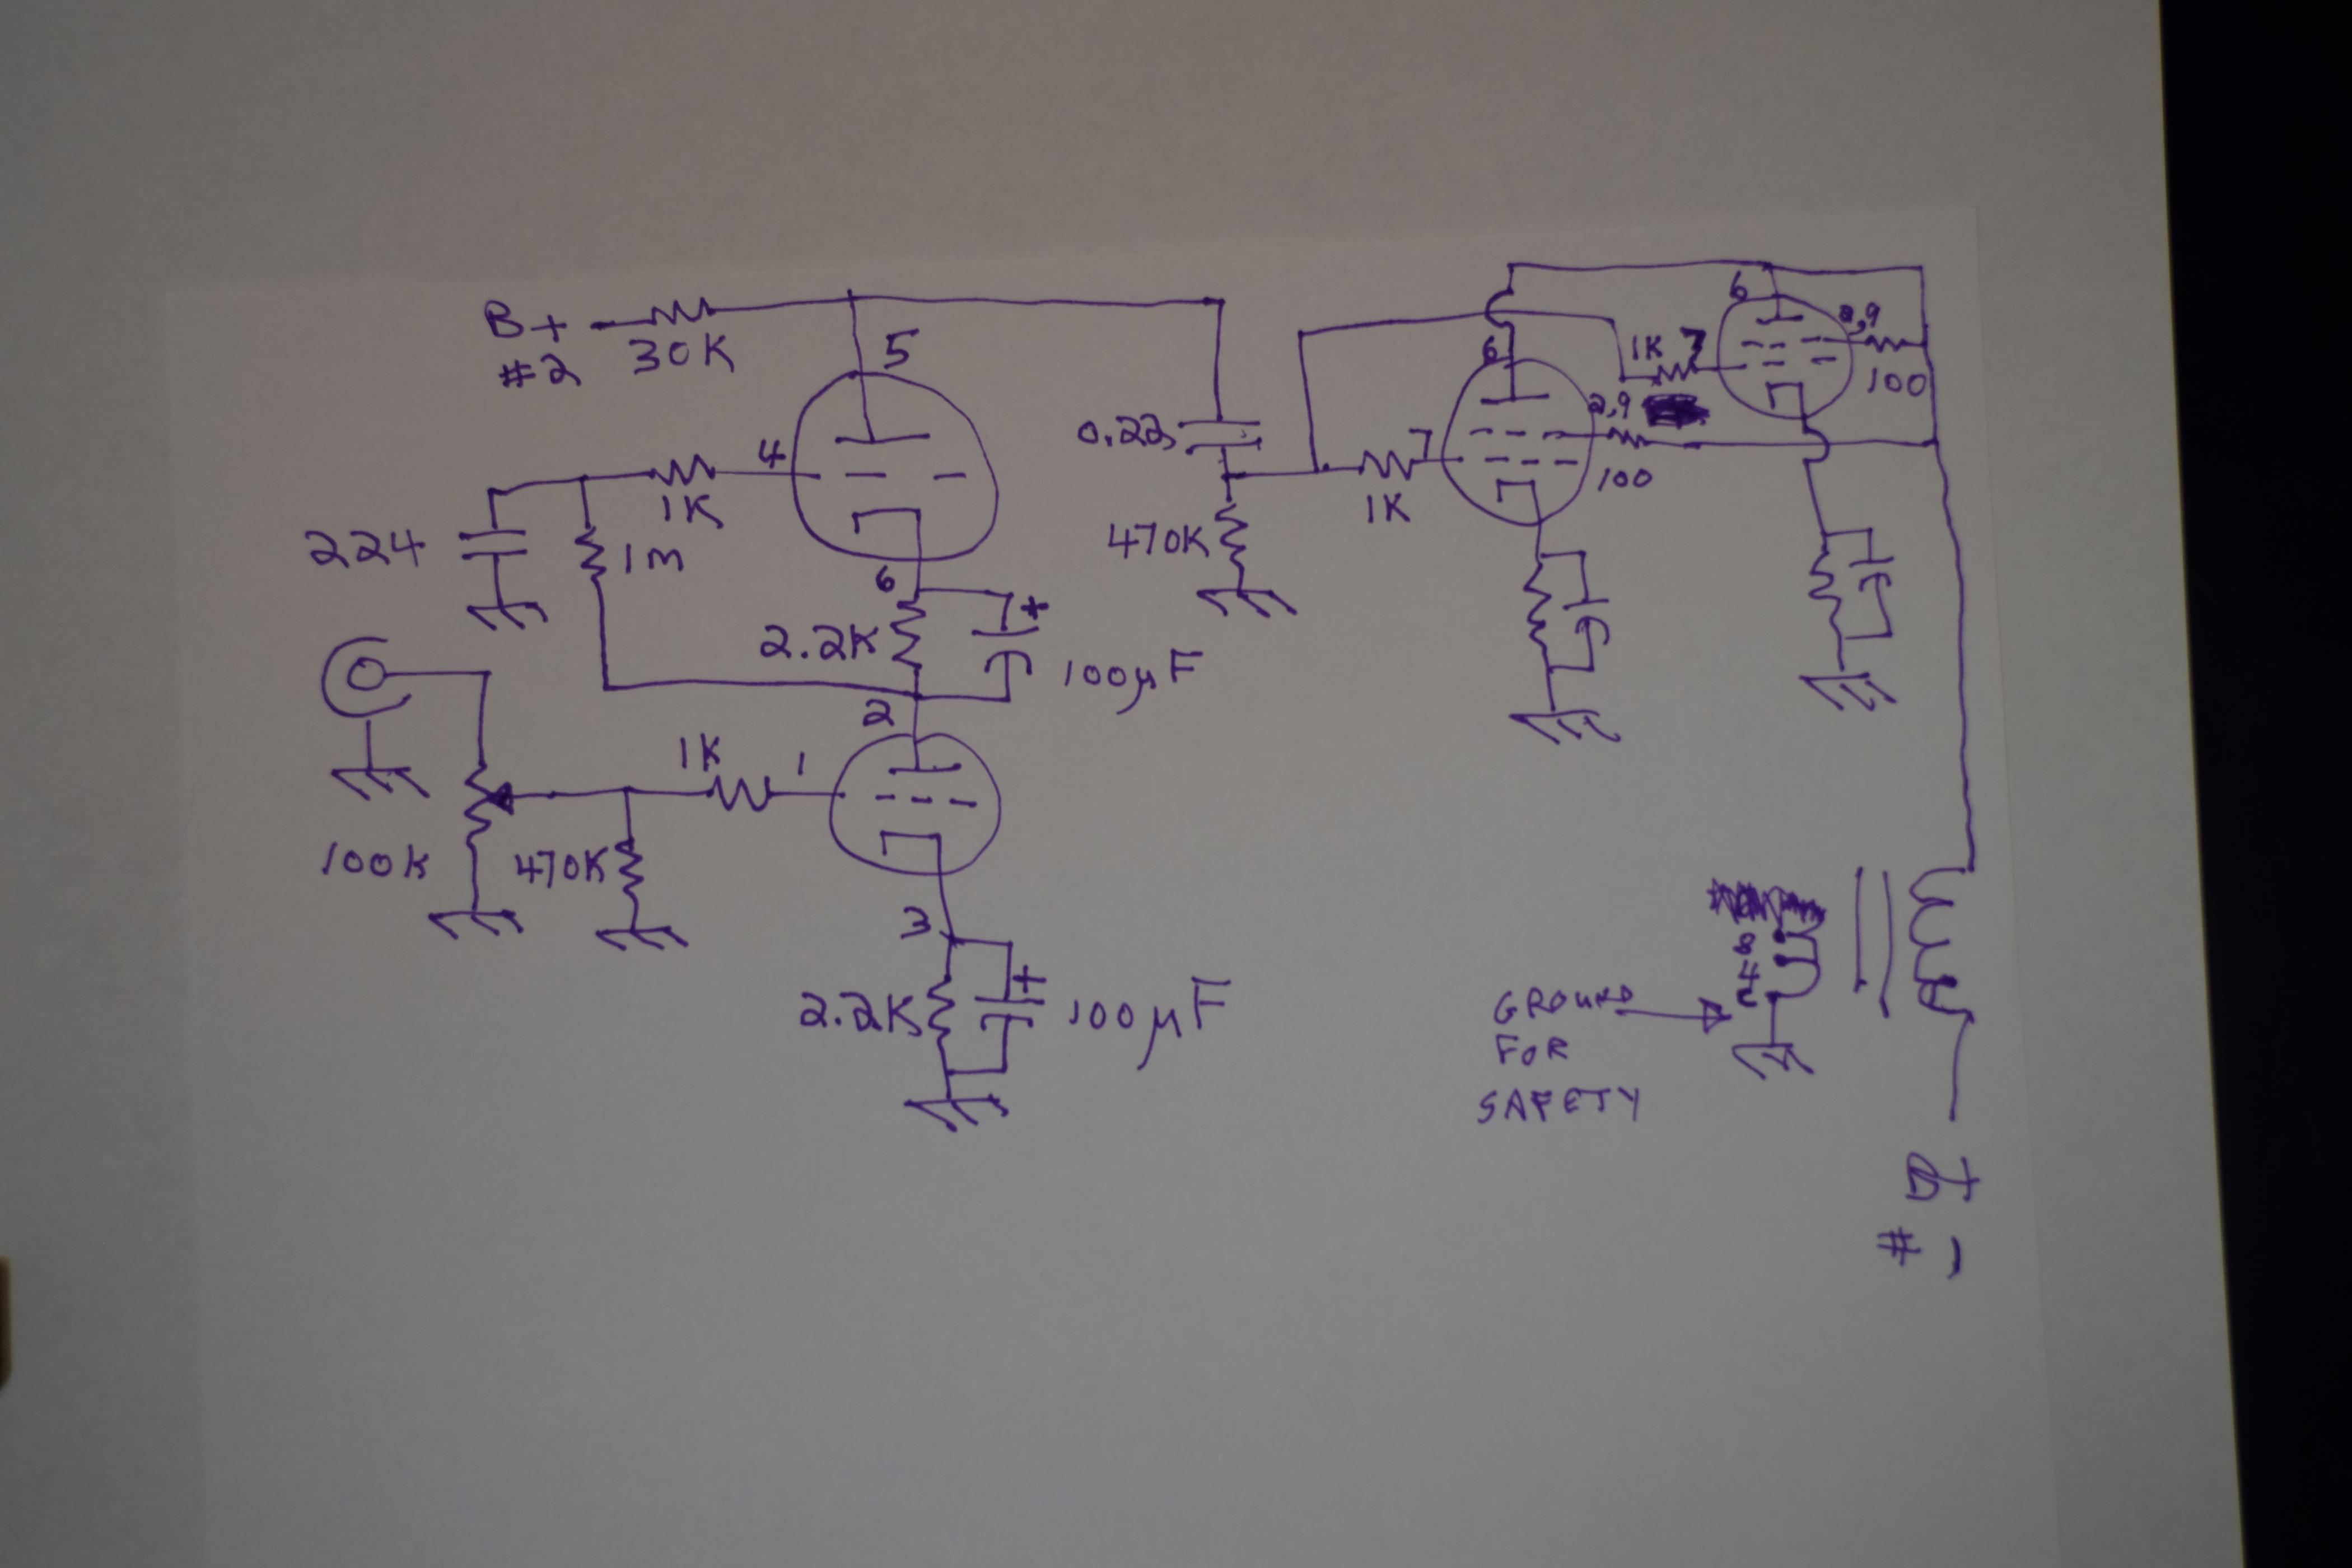 B+
#2
30K
5
4
1K
224
1M
6
2.2K
+
100µF
2
1K
1
100K
470K
3
2.2K
+
100µF
0.22
470K
1K
7
6
2,9
100
1K
7
6
2,9
100
8
4
C
GROUND
FOR
SAFETY
B+
#1